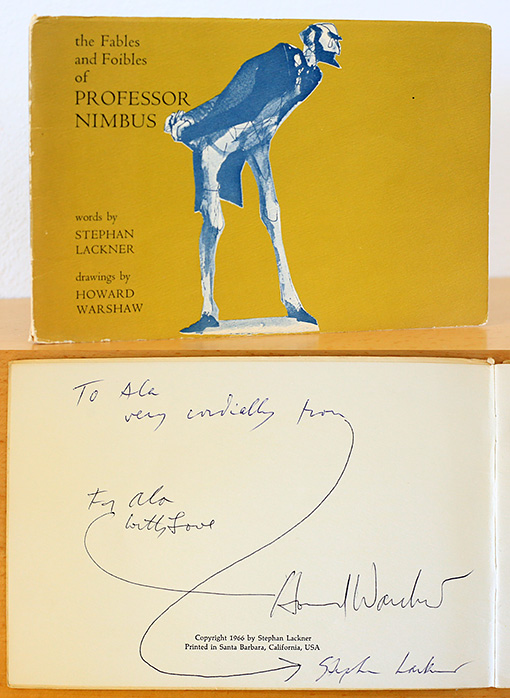 the Fables
and Foibles
of
PROFESSOR
NIMBUS
words by
STEPHAN
LACKNER
drawings by
HOWARD
WARSHAW
To Ala
very cordially from
For Ala
With Love
Howard Warshaw
Copyright 1966 by Stephan Lackner
Printed in Santa Barbara, California, USA
Stephan Lackner